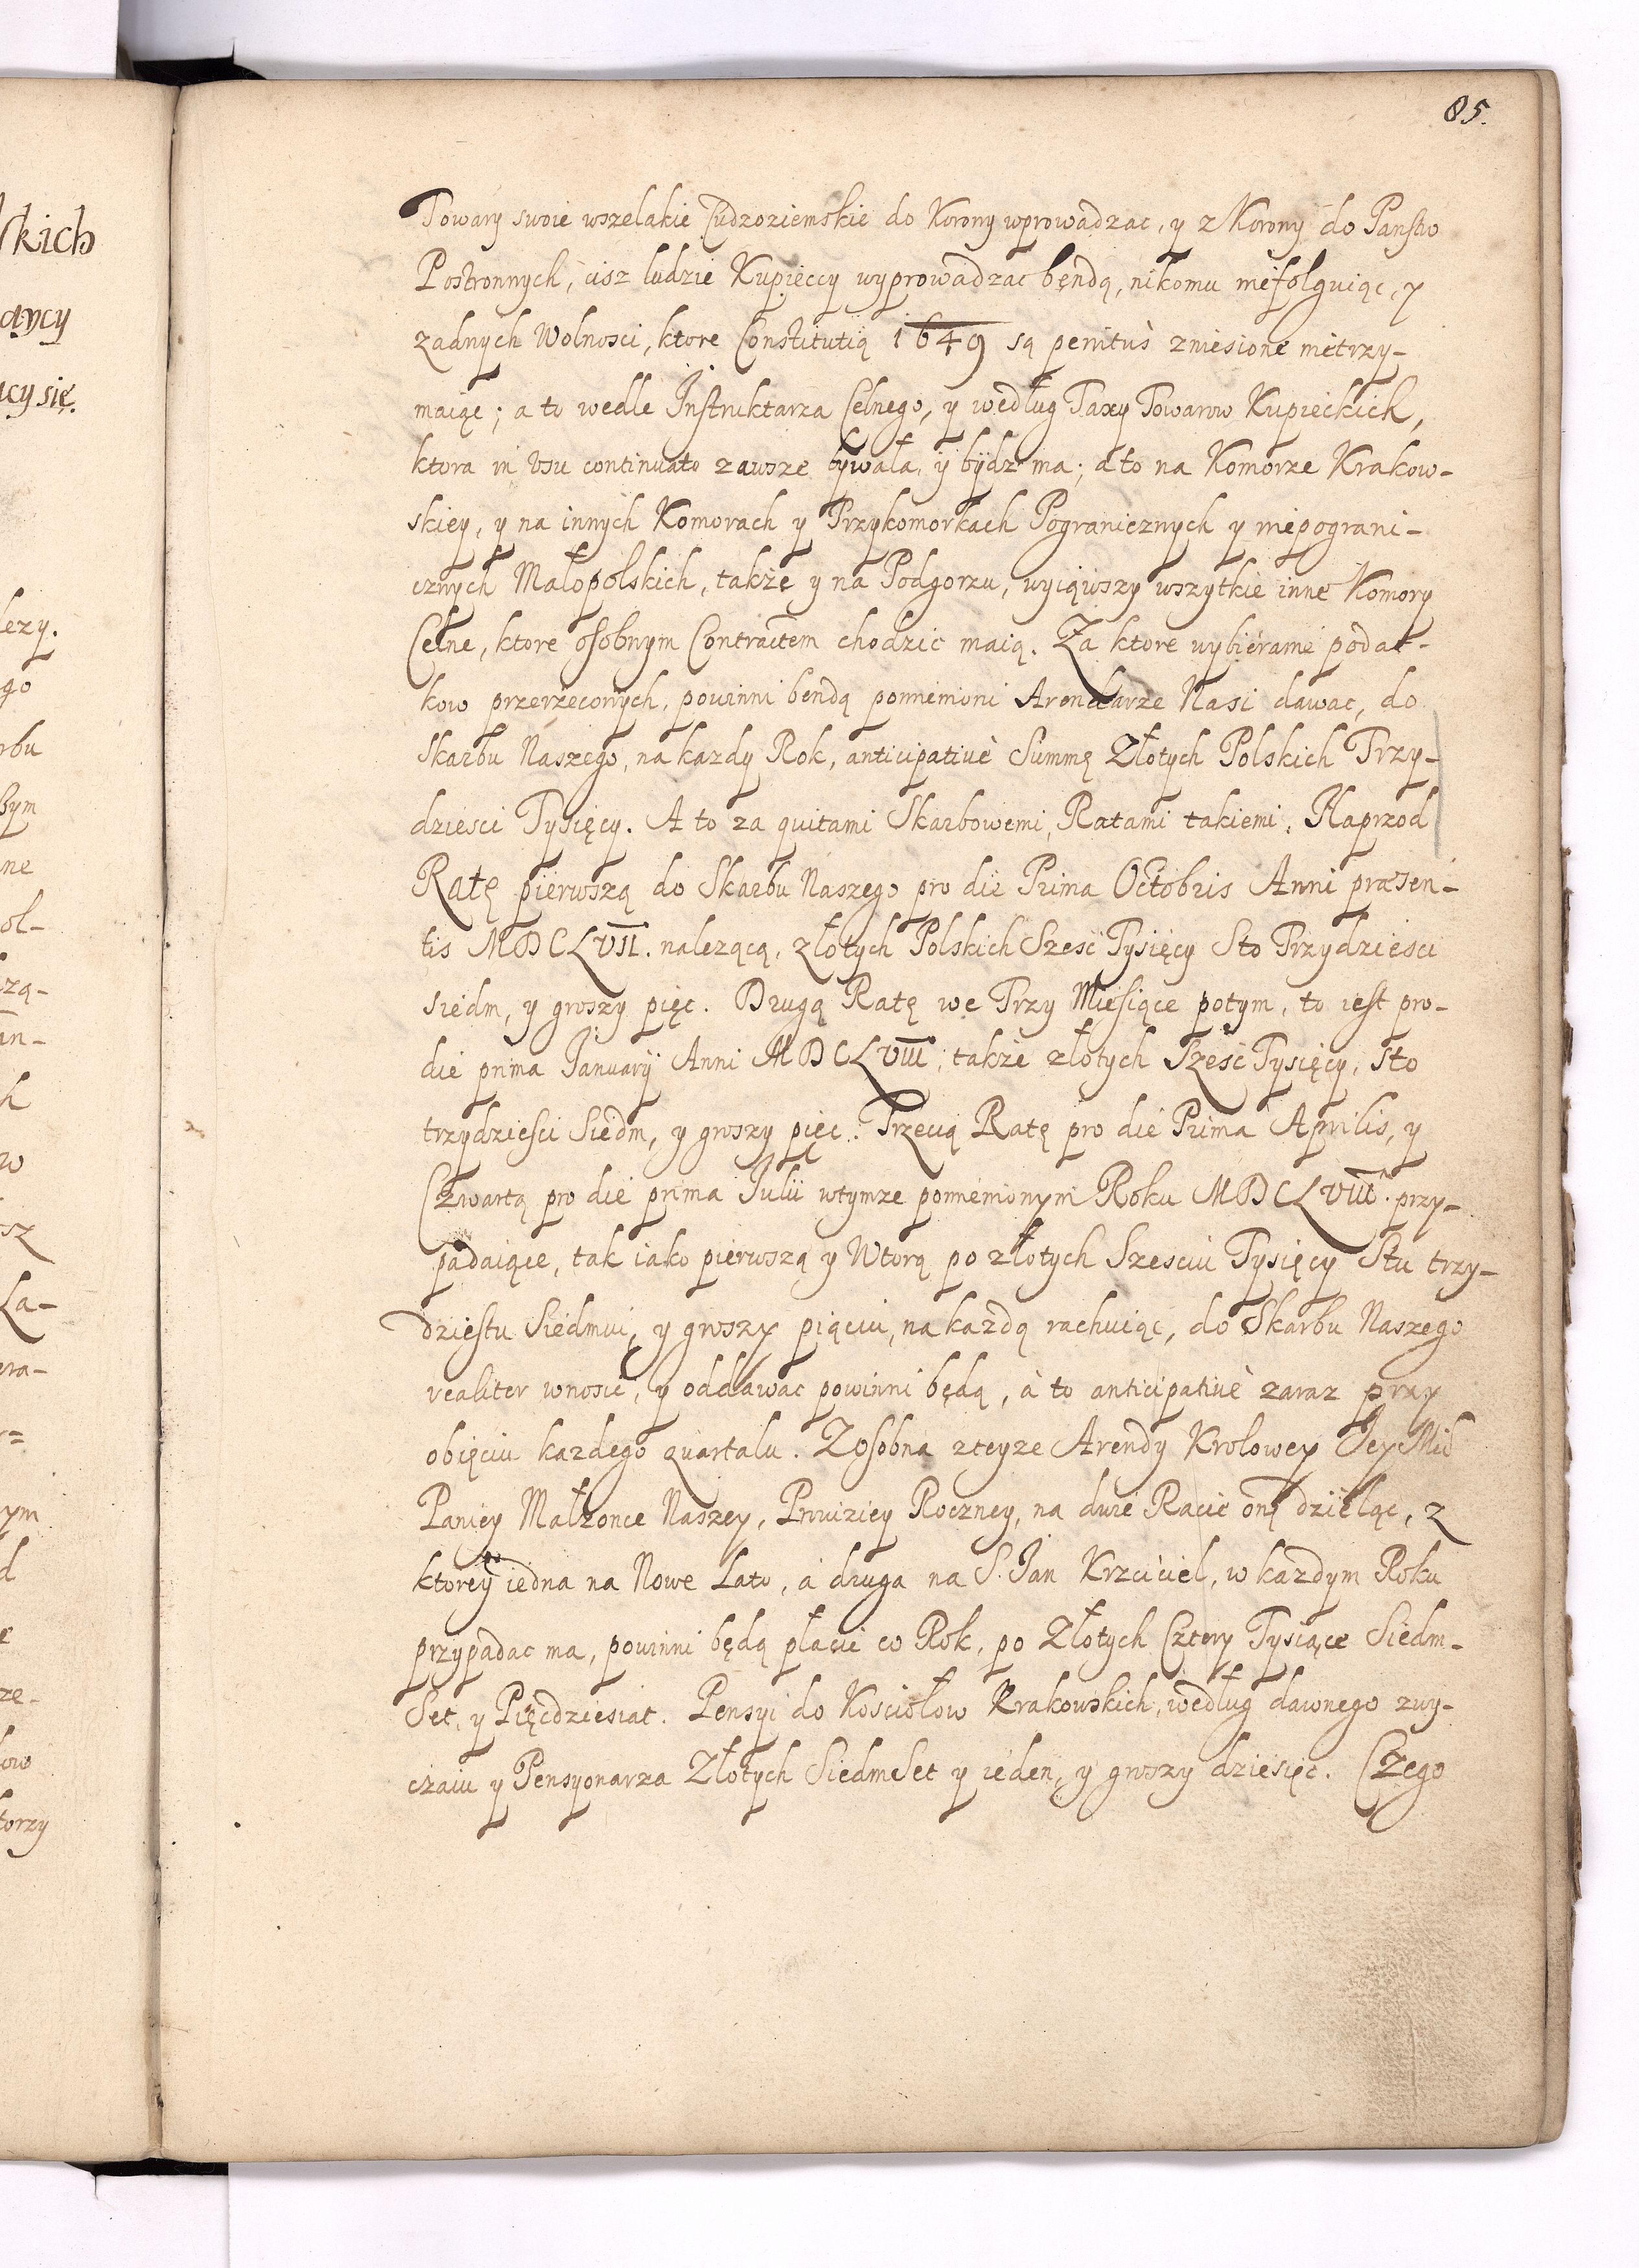 85.
Towary swoie wszelakie Cudzoziemskie do Korony wprowadzac, y z Korony do Panstw
Postronnych, cisz ludzie Kupieccy wyprowadzac bęndą, nikomu niefolguiąc, y
zadnych Wolnosci, ktore Constitutią 1649 są penitùs zniesione nietrzy-
maiąc; a to wedle Instruktarza Celnego, y według Taxy Towarow Kupieckich,
ktora in Vsu continuato zawsze bywała, y bydz ma; a to na Komorze Krakow-
skiey, y na innych Komorach y Przykomorkach Pogranicznych y niepograni-
cznych Małopolskich, także y na Podgorzu, wyiąwszy wszytkie inne Komory
Celne, ktore osobnym Contractem chodzic maią. Za ktore wybieranie podat-
kow przerzeconych, powinni bendą pomienioni Arendarze Nasi dawac, do
Skarbu Naszego, na kazdy Rok, anticipativè Summę Złotych Polskich Trzy-
dziesci Tysięcy. A to za quitami Skarbowemi, Ratami takiemi. Naprzod
Ratę pierwszą do Skarbu Naszego pro die Prima Octobris Anni præsen-
tis MDCLVII. nalezącą, złotych Polskich Szesc Tysięcy Sto Trzydziesci
siedm, y groszy pięc. Drugą Ratę we Trzy Miesiące potym, to iest pro
die prima Januarij Anni MDCLVIII, także złotych Szesc Tysięcy, sto
trzydziesci Siedm, y groszy pięc. Trzecią Ratę pro die Prima Aprilis, y
Czwartą pro die prima Julii wtymze pomienionym Roku MDCLVIII. przy-
padaiące, tak iako pierwszą y Wtorą po złotych Szesciu Tysięcy Stu trzy-
dziestu Siedmiu, y groszy piąciu, na każdą rachuiąc, do Skarbu Naszego
realiter wnosic, y oddawac powinni będą, à to anticipativè zaraz przy
obięciu kazdego quartalu. Zosobna zteyze Arendy Krolowey Jey Mci
Paniey Małzonce Naszey, Prowiziey Roczney, na dwie Racie onę dzieląc, z
ktorey iedna na Nowe Lato, à druga na S. Jan Krzciciel, w kazdym Roku
przypadac ma, powinni będą płacic co Rok, po Złotych Cztery Tysiące Siedm-
Set, y Pięcdziesiat. Pensyi do Kosciołow Krakowskich, według dawnego zwy-
czaiu y Pensyonarza Złotych SiedmSet y ieden, y groszy dziesięc. Czego